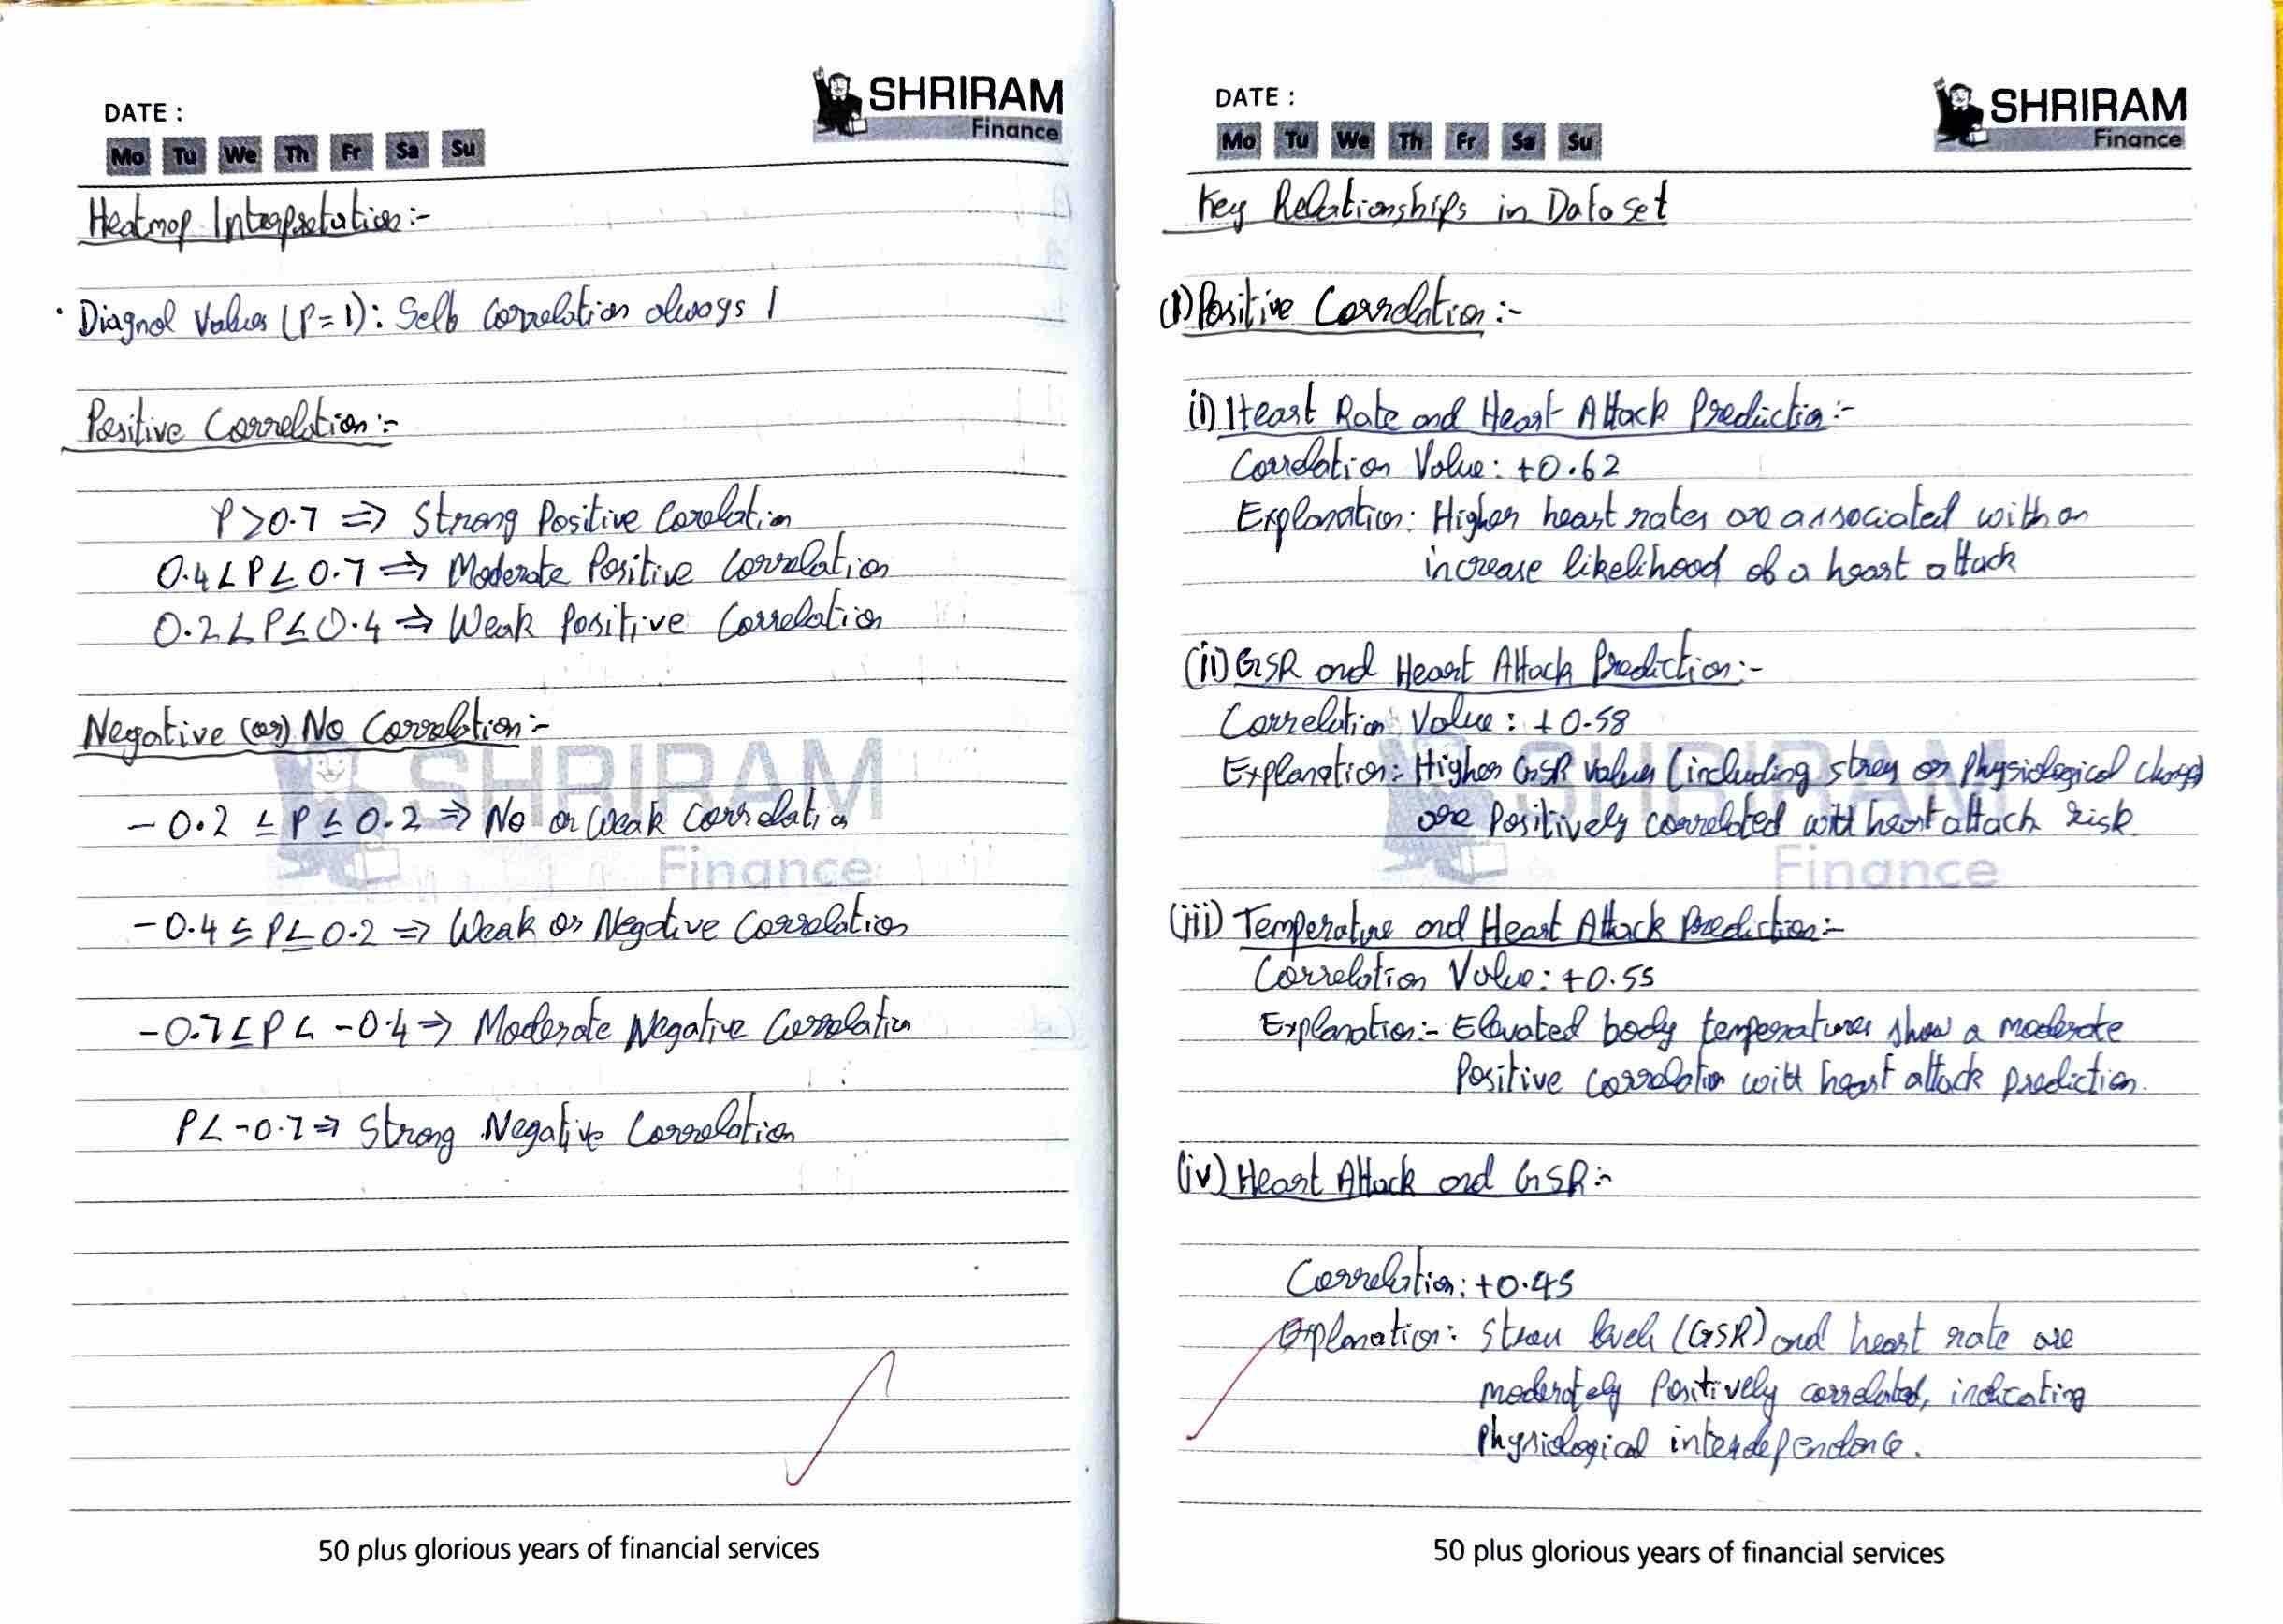 DATE :
SHRIRAM
Finance
Mo Tu We Th Fr Sa Su
Heatmap Intrepretation:-
• Diagnol Values (P=1): Self Correlation always 1
Positive Correlation:-
P>0.7 => Strong Positive Corelation
0.4<P≤0.7 => Moderate Positive Correlation
0.2<P≤0.4 => Weak Positive Correlation
Negative (or) No Correlation:-
SHRIRAM
-0.2 ≤ P ≤ 0.2 => No or Weak Correlation
Finance
-0.4 ≤ P ≤ 0.2 => Weak or Negative Correlation
-0.7 ≤ P < -0.4 => Moderate Negative Correlation
P < -0.7 => Strong Negative Correlation
50 plus glorious years of financial services
DATE :
SHRIRAM
Finance
Mo Tu We Th Fr Sa Su
Key Relationships in Dataset
(1) Positive Correlation:-
(i) Heart Rate and Heart Attack Prediction:-
Correlation Value: +0.62
Explanation: Higher heart rates are associated with an
increase likelihood of a heart attack
(ii) GSR and Heart Attack Prediction:-
Correlation Value: +0.58
Explanation:- Higher GSR values (including stress or physiological changes)
SHRIRAM
are Positively correlated with heart attack risk.
Finance
(iii) Temperature and Heart Attack Prediction:-
Correlation Value: +0.55
Explanation:- Elevated body temperatures show a moderate
Positive correlation with heart attack prediction.
(iv) Heart Attack and GSR:-
Correlation: +0.45
Explanation: Stress levels (GSR) and heart rate are
moderately Positively correlated, indicating
Physiological interdependence.
50 plus glorious years of financial services